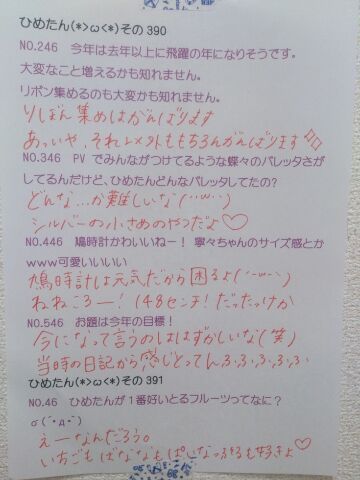 ひめたん(*>ω<*)その390
NO.246 今年は去年以上に飛躍の年になりそうです。
大変なこと増えるかも知れません。
リボン集めるのも大変かも知れません。
りぼん集めはがんばります
あっいや、それ以外ももちろんがんばります
NO.346 PVでみんながつけてるような蝶々のバレッタさが
してるんだけど、ひめたんどんなバレッタしてたの?
どんな…か難しいな(´-ω-`)
シルバーの小さめのやつだよ♡
NO.446 鳩時計かわいいねー! 寧々ちゃんのサイズ感とか
www可愛いいいい
鳩時計は元気だから困るよ(´-ω-`)
ねねころー!148センチ!だったっけか
NO.546 お題は今年の目標!
今になって言うのははずかしいな(笑)
当時の日記から感じとってんふふふふふ
ひめたん(*>ω<*)その391
NO.46 ひめたんが1番好いとるフルーツってなに?
σ(´・д・`)
えーなんだろう。
いちごもばななもぱいなっぷるも好きよ♡